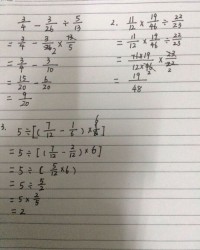 3/4 - 3/26 ÷ 5/13
= 3/4 - 3/26 × 13/5
= 3/4 - 3/10
= 15/20 - 6/20
= 9/20
2. 11/12 × 19/46 ÷ 22/23
= 11/12 × 19/46 ÷ 22/23
= 19/48
3. 5÷[(7/12 - 1/6)×6]
= 5÷[(7/12 - 2/12)×6]
= 5÷(5/12×6)
= 5÷5/2
= 5×2/5
= 2